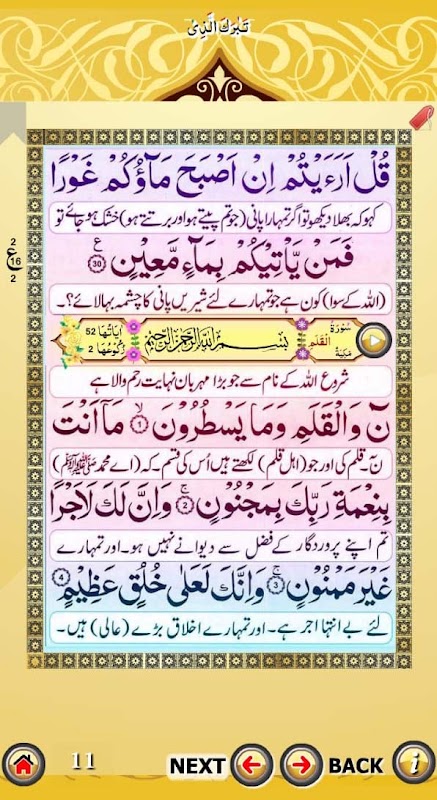 تَبٰرَكَ الَّذِیْ
قُلْ اَرَءَیْتُمْ اِنْ اَصْبَحَ مَآؤُكُمْ غَوْرًا
کہو کہ بھلا دیکھو تو اگر تمہارا پانی (جو تم پیتے ہو اور برتتے ہو) خشک ہو جائے تو
2
ع 16
2
فَمَنْ یَّاْتِیْكُمْ بِمَآءٍ مَّعِیْنٍ ع 30
(اللہ کے سوا) کون ہے جو تمہارے لئے شیریں پانی کا چشمہ بہا لائے؟۔
سُوْرَةُ الْقَلَمِ مَکِّیَّةٌ
بِسْمِ اللهِ الرَّحْمٰنِ الرَّحِیْمِ
اٰیَاتُهَا 52
رُكُوْعُهَا 2
شروع اللہ کے نام سے جو بڑا مہربان نہایت رحم والا ہے
نٓ وَالْقَلَمِ وَمَا یَسْطُرُوْنَ ۙ 1 مَاۤ اَنْتَ
نٓ۔ قلم کی اور جو (اہل قلم) لکھتے ہیں اُس کی قسم۔ کہ (اے محمد ﷺ)
بِنِعْمَةِ رَبِّكَ بِمَجْنُوْنٍ ۚ 2 وَاِنَّ لَكَ لَاَجْرًا
تم اپنے پروردگار کے فضل سے دیوانے نہیں ہو۔ اور تمہارے
غَیْرَ مَمْنُوْنٍ ۚ 3 وَاِنَّكَ لَعَلٰی خُلُقٍ عَظِیْمٍ 4
لئے بے انتہا اجر ہے۔ اور تمہارے اخلاق بڑے (عالی) ہیں۔
11 NEXT BACK i